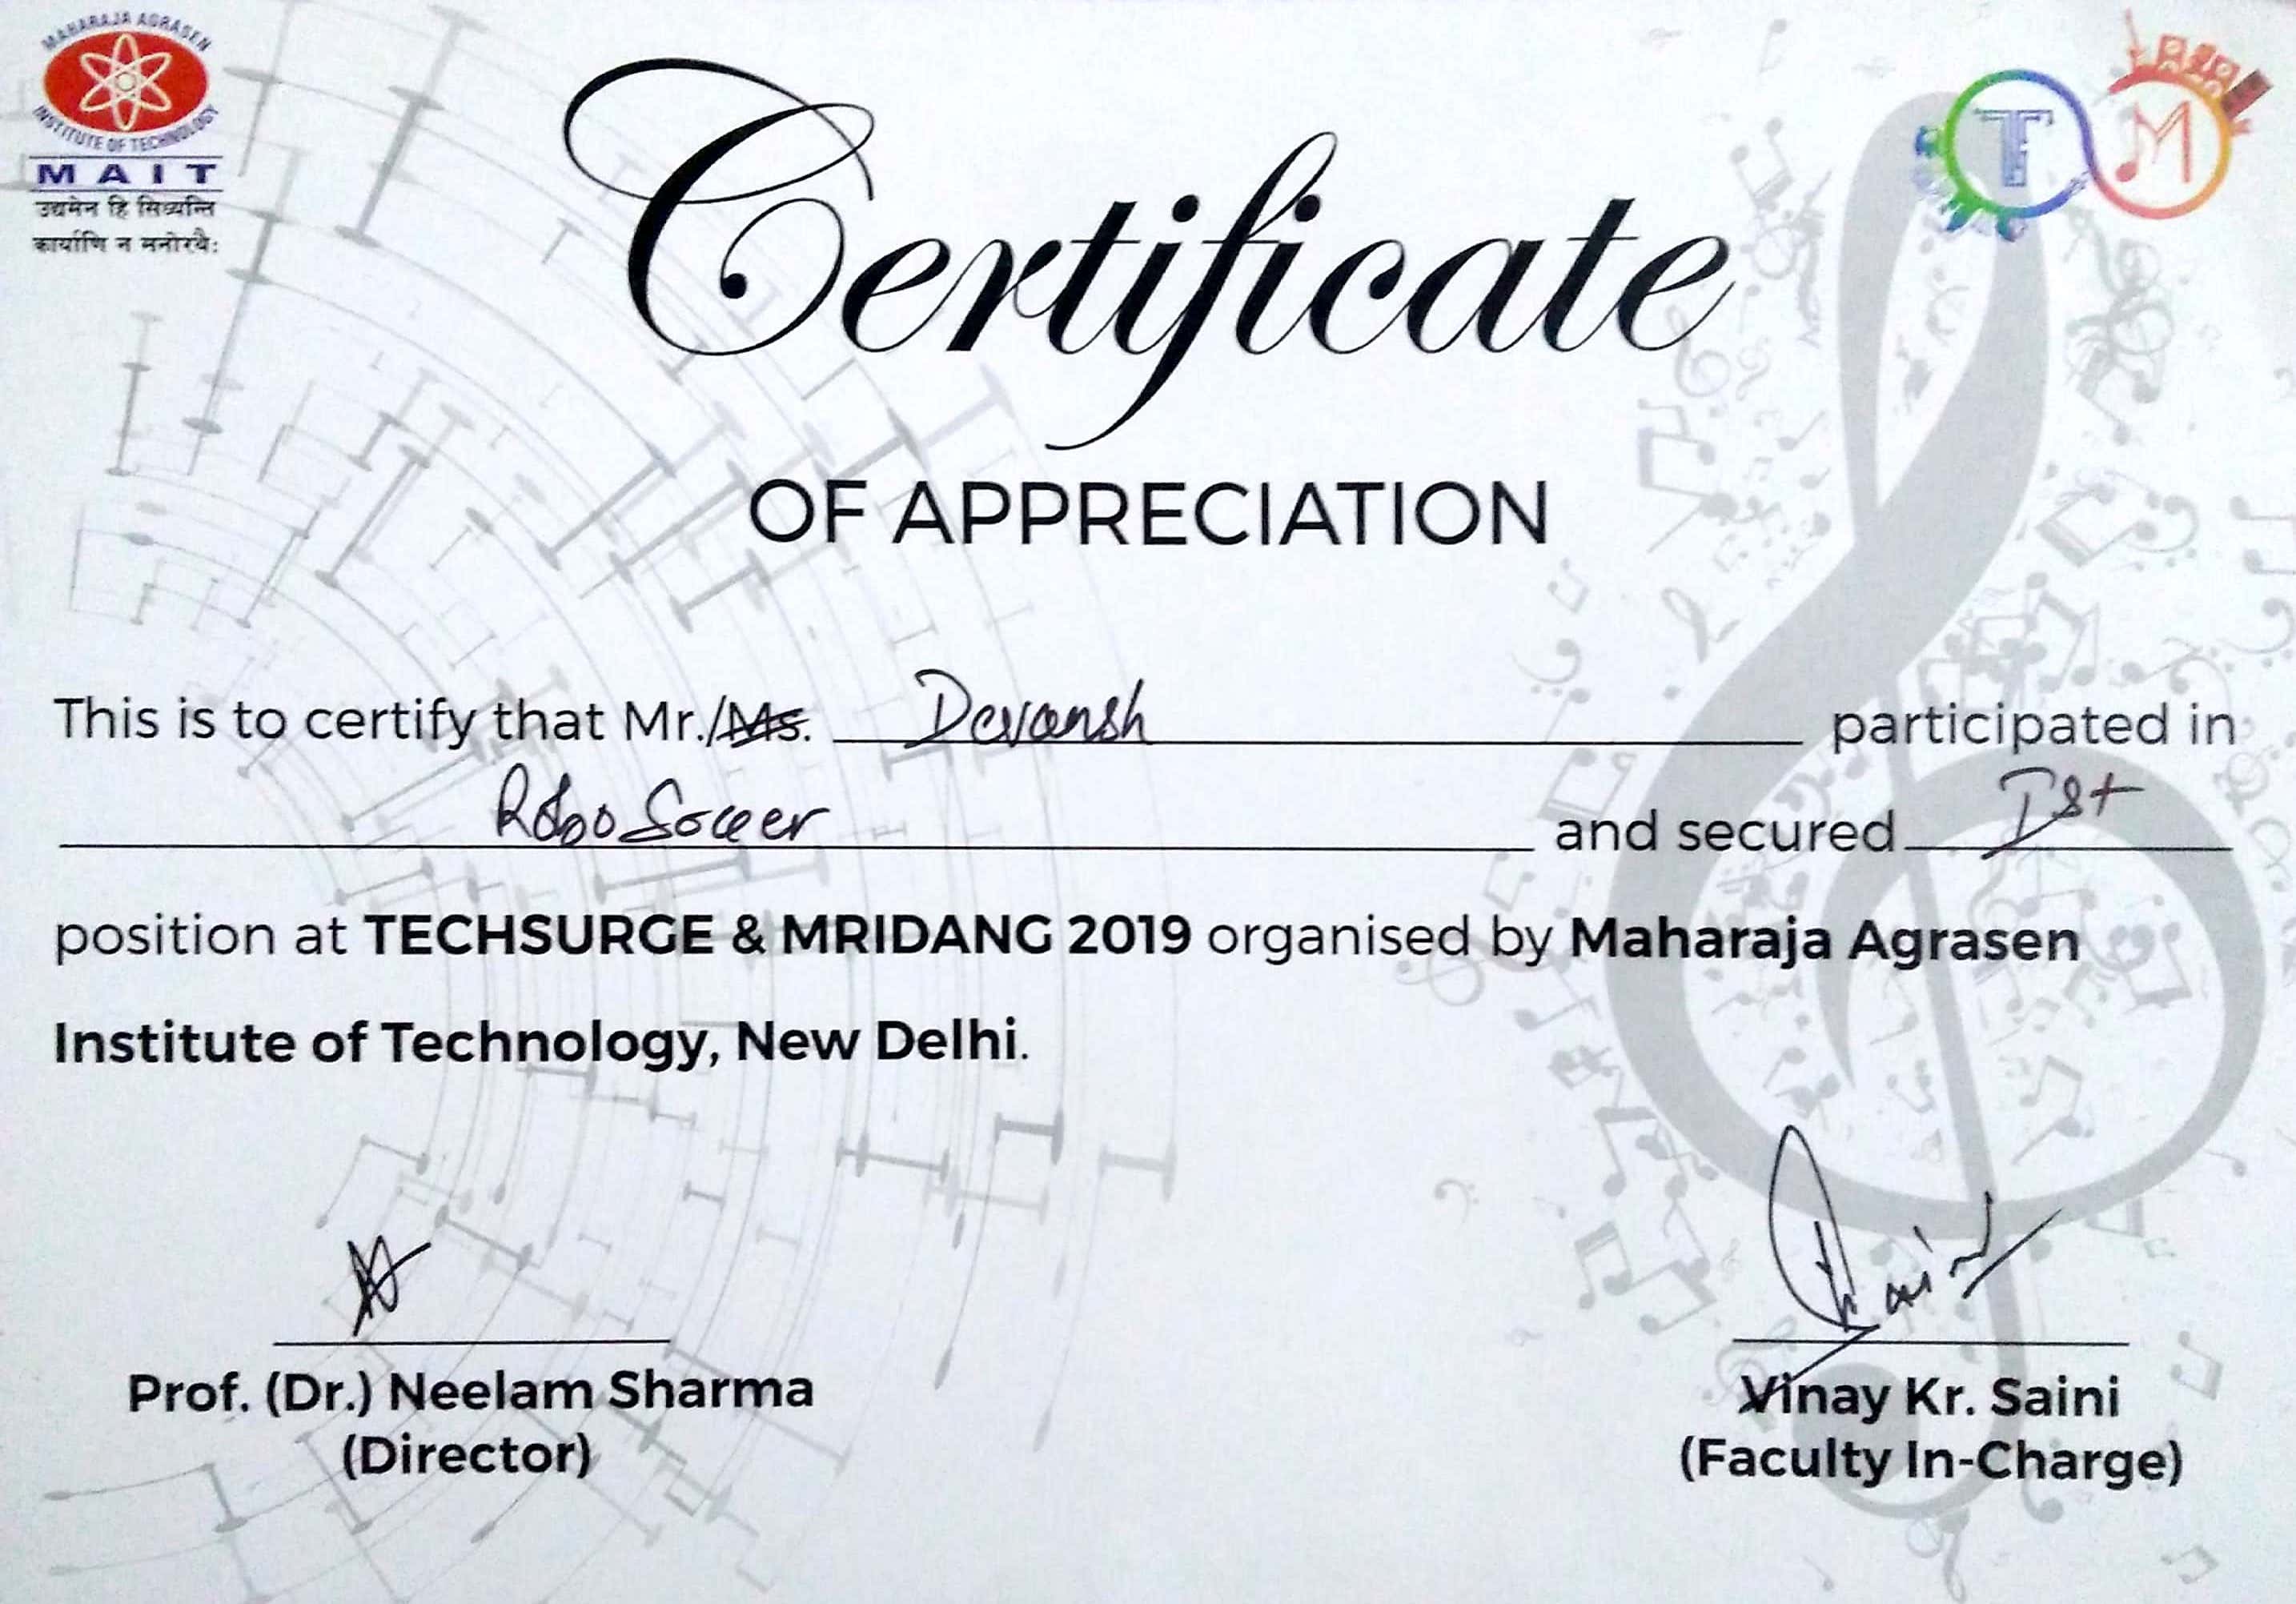 MAHARAJA AGRASEN
INSTITUTE OF TECHNOLOGY
MAIT
उद्यमेन हि सिध्यन्ति
कार्याणि न मनोरथैः
T M
Certificate
OF APPRECIATION
This is to certify that Mr./Ms. Devansh participated in
Robo Soccer and secured Ist
position at TECHSURGE & MRIDANG 2019 organised by Maharaja Agrasen
Institute of Technology, New Delhi.
Saini
Prof. (Dr.) Neelam Sharma
(Director)
Vinay Kr. Saini
(Faculty In-Charge)